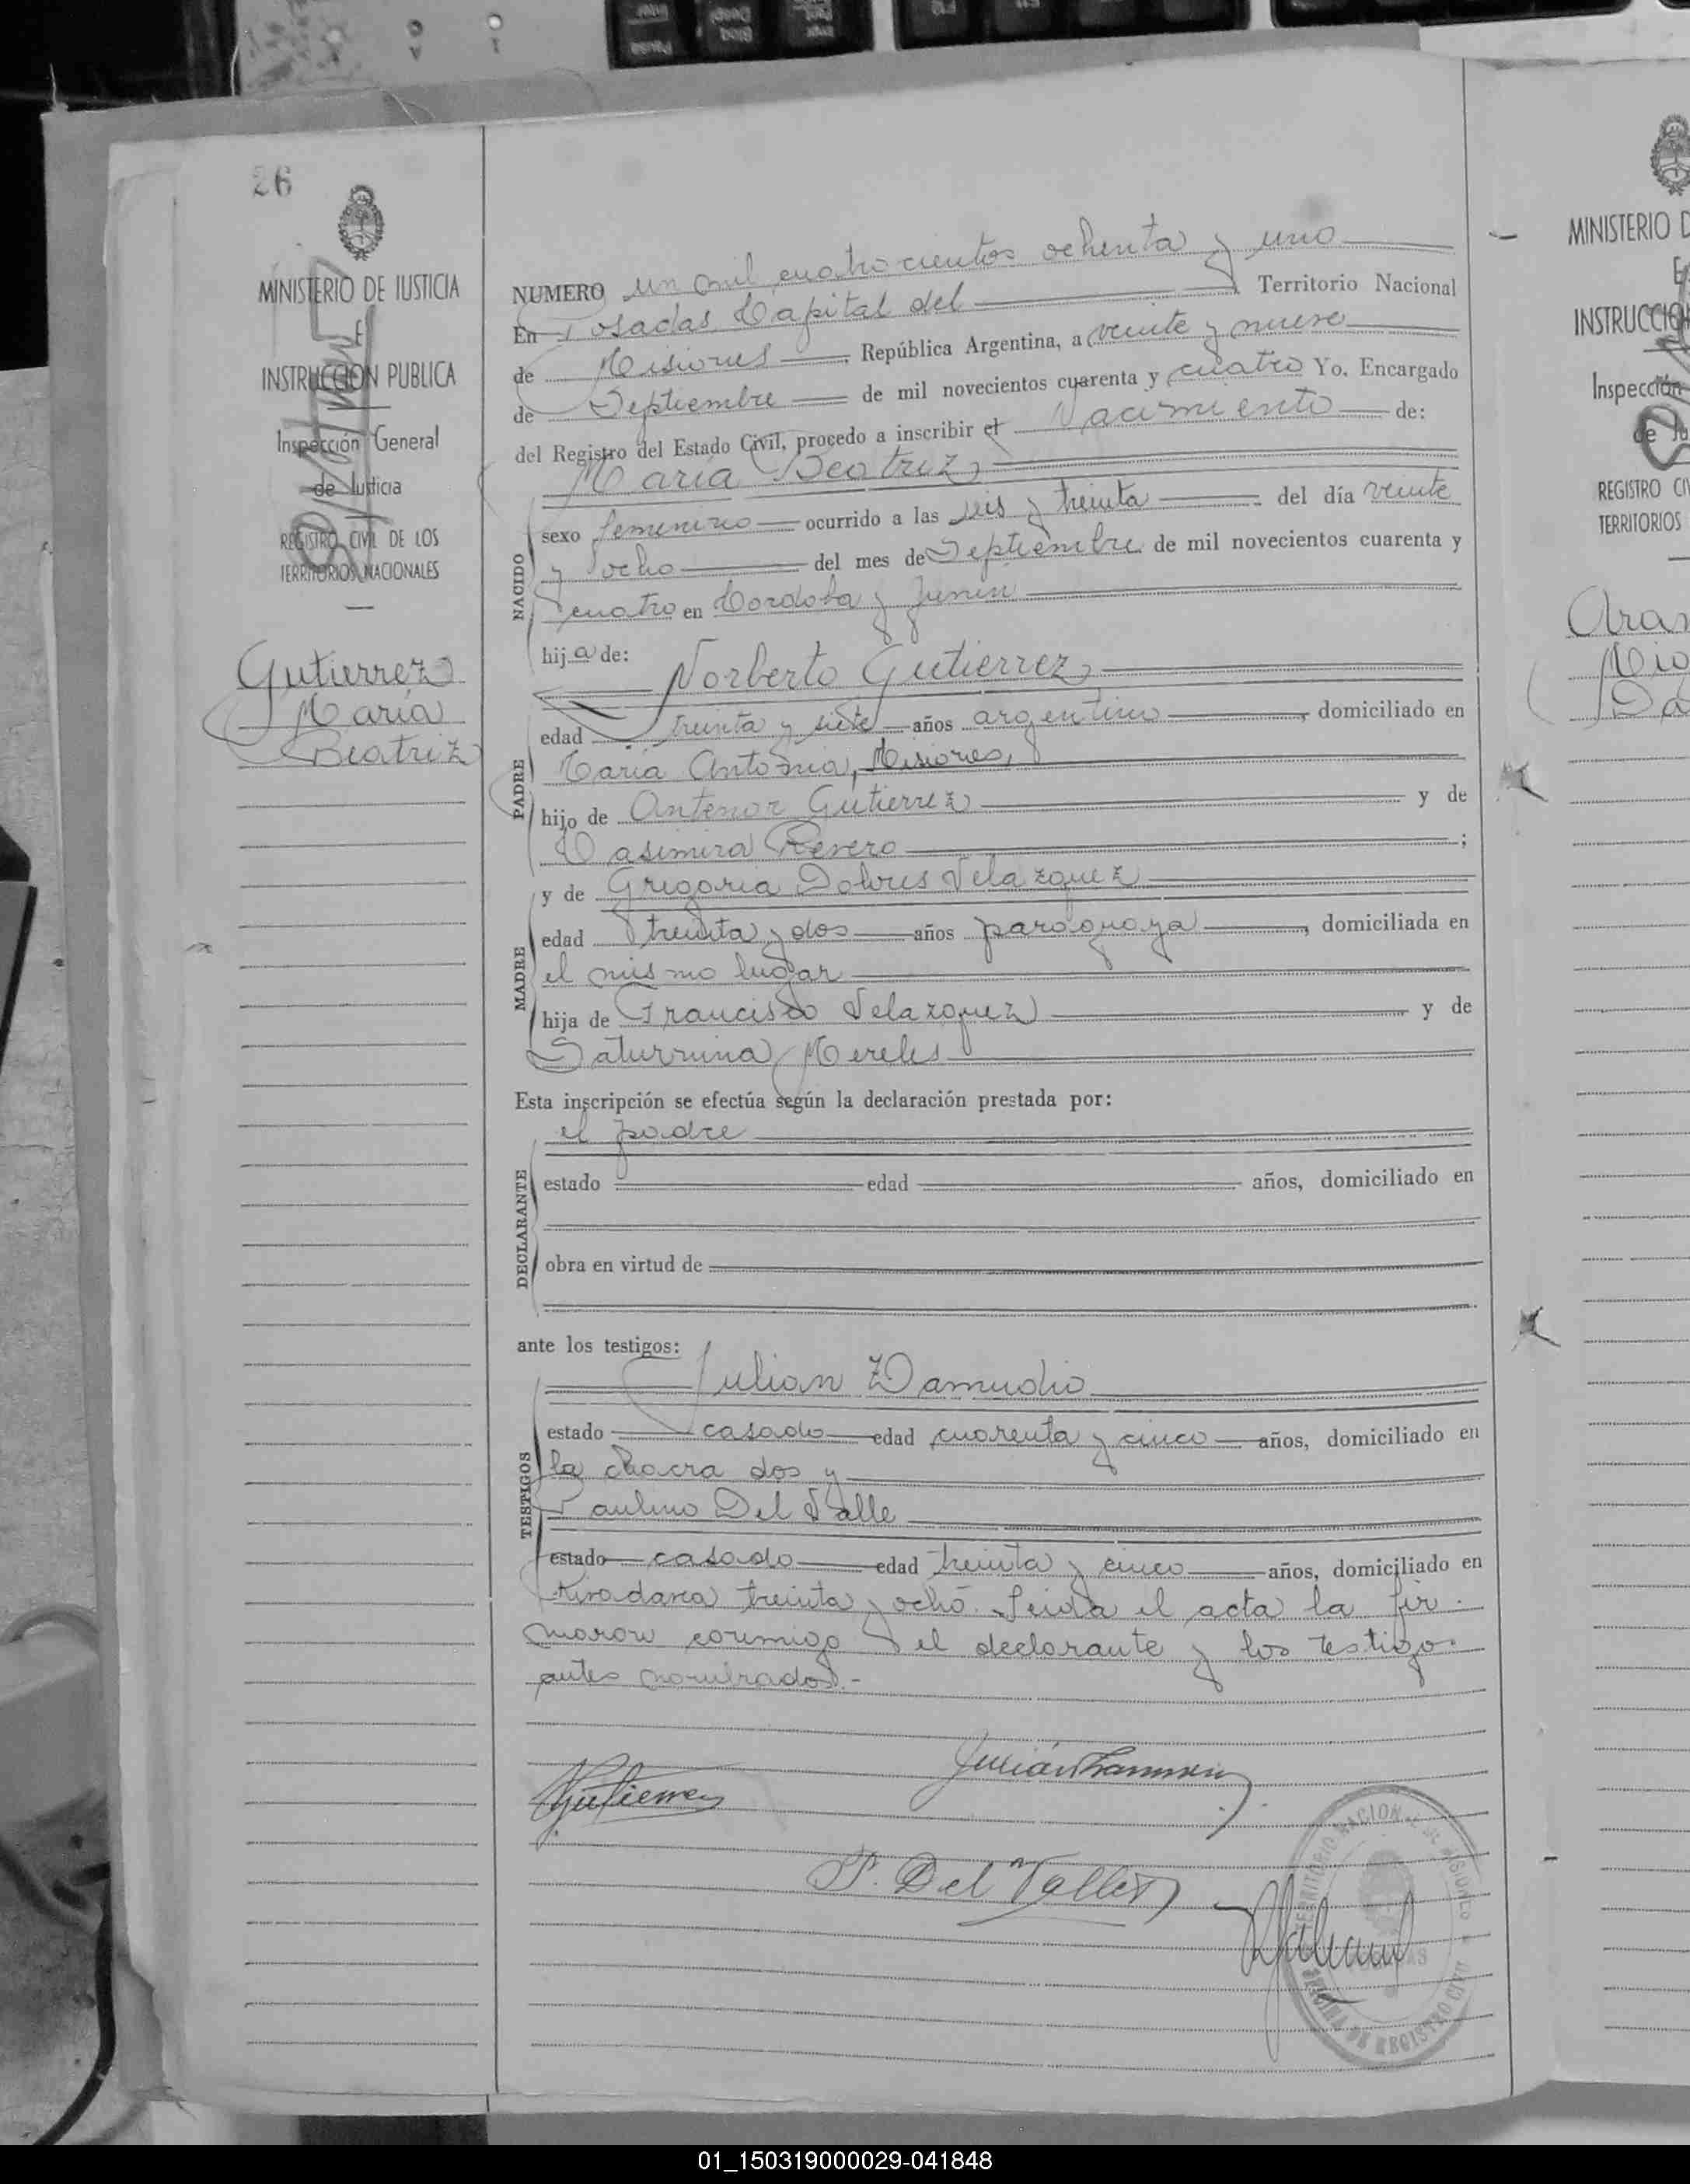 26
MINISTERIO DE JUSTICIA
E
INSTRUCCION PUBLICA
Inspección General
de Justicia
REGISTRO CIVIL DE LOS
TERRITORIOS NACIONALES
Gutierrez
Maria
Beatriz
NUMERO un mil cuatrocientos ochenta y uno
En Posadas Capital del Territorio Nacional
de Misiones, República Argentina, a veinte y nueve
de Septiembre de mil novecientos cuarenta y cuatro Yo, Encargado
del Registro del Estado Civil, procedo a inscribir el Nacimiento de:
Maria Beatriz
NACIDO
sexo femenino ocurrido a las seis y treinta del día veinte
y ocho del mes de Septiembre de mil novecientos cuarenta y
cuatro en Cordoba y Junin
hija de:
Norberto Gutierrez
PADRE
edad treinta y siete años argentino, domiciliado en
Maria Antonia, Misiones,
hijo de Antenor Gutierrez y de
Casimira Rivero;
MADRE
y de Gregoria Dolores Velazquez
edad treinta y dos años paraguaya, domiciliada en
el mismo lugar
hija de Francisco Velazquez y de
Saturnina Mereles
Esta inscripción se efectúa según la declaración prestada por:
el padre
DECLARANTE
estado edad años, domiciliado en
obra en virtud de
ante los testigos:
Julian Zamudio
TESTIGOS
estado casado edad cuarenta y cinco años, domiciliado en
la chacra dos y
Paulino Del Valle
estado casado edad treinta y cinco años, domiciliado en
Rivadavia treinta y ocho. Leida el acta la fir-
maron conmigo el declarante y los testigos
antes nombrados.-
NGutierrez
P. Del Valle
TERRITORIO NACIONAL DE MISIONES
OFICINA DE REGISTRO CIVIL
MINISTERIO D
E
INSTRUCCIO
Inspección
de Ju
REGISTRO CI
TERRITORIOS
01_150319000029-041848